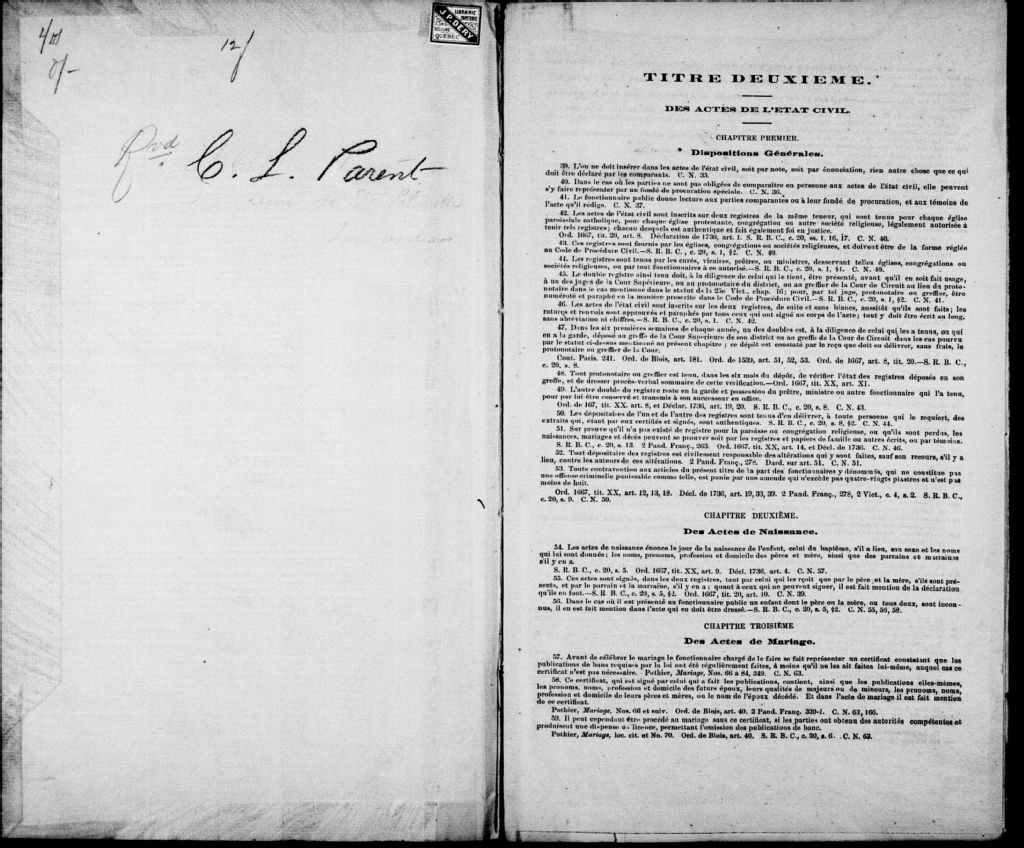 LIBRAIRIE
J.P. DERY
RELIURE
QUÉBEC
12/
Rvd C. L. Parent
TITRE DEUXIEME.
DES ACTES DE L'ETAT CIVIL.
CHAPITRE PREMIER.
Dispositions Générales.
39. L'on ne doit insérer dans les actes de l'état civil, soit par note, soit par énonciation, rien autre chose que ce qui
doit être déclaré par les comparants. C. N. 35.
40. Dans le cas où les parties ne sont pas obligées de comparaître en personne aux actes de l'état civil, elle peuvent
s'y faire représenter par un fondé de procuration spéciale. C. N. 36.
41. Le fonctionnaire public donne lecture aux parties comparantes ou à leur fondé de procuration, et aux témoins de
l'acte qu'il rédige. C. N. 37.
42. Les actes de l'état civil sont inscrits sur deux registres de la même teneur, qui sont tenus pour chaque église
paroissiale catholique, pour chaque église protestante, congrégation ou autre société religieuse, légalement autorisée à
tenir tels registres; chacun desquels est authentique et fait également foi en justice.
Ord. 1667, tit. 20, art. 8. Déclaration de 1736, art. 1. S. R. B. C., c. 20, ss. 1, 16, 17. C. N. 40.
43. Ces registres sont fournis par les églises, congrégations ou sociétés religieuses, et doivent être de la forme réglée
au Code de Procédure Civil.—S. R. B. C., c. 20, s. 1, §2. C. N. 40.
44. Les registres sont tenus par les curés, vicaires, prêtres, ou ministres, desservant telles églises, congrégations ou
sociétés religieuses, ou par tout fonctionnaires à ce autorisé.—S. R. B. C., c. 20, s. 1, §1. C. N. 40.
45. Le double registre ainsi tenu doit, à la diligence de celui qui le tient, être présenté, avant qu'il en soit fait usage,
à un des juges de la Cour Supérieure, ou au protonotaire du district, ou au greffier de la Cour de Circuit au lieu du proto-
notaire dans le cas mentionné dans le statut de la 25e Vict., chap. 16; pour, par tel juge, protonotaire ou greffier, être
numéroté et paraphé en la manière prescrite dans le Code de Procédure Civil.—S. R. B. C., c. 20, s. 1, §2. C. N. 41.
46. Les actes de l'état civil sont inscrits sur les deux registres, de suite et sans blancs, aussitôt qu'ils sont faits; les
ratures et renvois sont approuvés et paraphés par tous ceux qui ont signé au corps de l'acte; tout y doit être écrit au long,
sans abréviation ni chiffres.—S. R. B. C., c. 20, s. 1. C. N. 42.
47. Dans les six premières semaines de chaque année, un des doubles est, à la diligence de celui qui les a tenus, ou qui
en a la garde, déposé au greffe de la Cour Superieure de son district ou au greffe de la Cour de Circuit dans les cas pourvu
par le statut ci-dessus mentionné au présent chapitre; ce dépôt est constaté par le reçu que doit en délivrer, sans frais, le
protonotaire ou greffier de la Cour.
Cout. Paris. 241. Ord. de Blois, art. 181. Ord. de 1539, art. 51, 52, 53. Ord. de 1667, art. 8, tit. 20.—S. R. B. C.,
c. 20, s. 8.
48. Tout protonotaire ou greffier est tenu, dans les six mois du dépôt, de vérifier l'état des registres déposés en son
greffe, et de dresser procès-verbal sommaire de cette vérification.—Ord. 1667, tit. XX, art. XI.
49. L'autre double du registre reste en la garde et possession du prêtre, ministre ou autre fonctionnaire qui l'a tenu,
pour par lui être conservé et transmis à son successeur en office.
Ord. de 167, tit. XX. art. 8, et Déclar. 1736, art. 19, 20. S. R. B. C., c. 20, s. 8. C. N. 43.
50. Les dépositaires de l'un et de l'autre des registres sont tenus d'en délivrer, à toute personne qui le requiert, des
extraits qui, étant par eux certifiés et signés, sont authentiques. S. R. B. C., c. 20, s. 8, §2. C. N. 44.
51. Sur preuve qu'il n'a pas existé de registre pour la paroisse ou congrégation religieuse, ou qu'ils sont perdus, les
naissances, mariages et décès peuvent se prouver soit par les registres et papiers de famille ou autres écrits, ou par témoins.
S. R. B. C., c. 20, s. 13. 2 Pand. Franç., 263. Ord. 1667. tit. XX, art. 14, et Décl. de 1736. C. N. 46.
52. Tout dépositaire des registres est civilement responsable des altérations qui y sont faites, sauf son recours, s'il y a
lieu, contre les auteurs de ces altérations. 2 Pand. Franç., 278. Dard. sur art. 51. C. N. 51.
53. Toute contravention aux articles du présent titre de la part des fonctionnaires y dénommés, qui ne constitue pas
une offense criminelle punissable comme telle, est punie par une amende qui n'excède pas quatre-vingts piastres et n'est pas
moins de huit.
Ord. 1667, tit. XX, art. 12, 13, 18. Décl. de 1736, art. 19, 33, 39. 2 Pand. Franç., 278, 2 Vict., c. 4, s. 2. S. R. B. C.,
c. 20, s. 9. C. N. 50.
CHAPITRE DEUXIÈME.
Des Actes de Naissance.
54. Les actes de naissance énonce le jour de la naissance de l'enfant, celui du baptême, s'il a lieu, son sexe et les noms
qui lui sont donnés; les noms, prenoms, profession et domicile des pères et mère, ainsi que des parrains et marraines
s'il y en a.
S. R. B. C., c. 20, s. 5. Ord. 1667, tit. XX, art. 9. Décl. 1736, art. 4. C. N. 57.
55. Ces actes sont signés, dans les deux registres, tant par celui qui les reçoit que par le père et la mère, s'ils sont pré-
sents, et par le parrain et la marraine, s'il y en a; quant à ceux qui ne peuvent signer, il est fait mention de la déclaration
qu'ils en font.—S. R. B. C., c. 20, s. 5, §2. Ord. 1667, tit. 20, art. 10. C. N. 39.
56. Dans le cas où il est présenté au fonctionnaire public un enfant dont le père ou la mère, ou tous deux, sont incon-
nus, il en est fait mention dans l'acte qui en doit être dressé.—S. R. B. C., c. 20, s. 5, §2. C. N. 55, 56, 58.
CHAPITRE TROISIÈME
Des Actes de Mariage.
57. Avant de célébrer le mariage le fonctionnaire chargé de le faire se fait représenter un certificat constatant que les
publications de bans requises par la loi ont été régulièrement faites, à moins qu'il ne les ait faites lui-même, auquel cas ce
certificat n'est pas nécessaire. - Pothier, Mariage, Nos. 66 à 84, 349. C. N. 63.
58. Ce certificat, qui est signé par celui qui a fait les publications, contient, ainsi que les publications elles-mêmes,
les prenoms, noms, profession et domicile des futurs époux, leurs qualités de majeurs ou de mineurs, les prenoms, noms,
profession et domicile de leurs pères et mères, ou le nom de l'époux décédé. Et dans l'acte de mariage il est fait mention
de ce certificat.
Pothier, Mariage, Nos. 66 et suiv. Ord. de Blois, art. 40. 2 Pand. Franç. 320-1. C. N. 63, 166.
59. Il peut cependant être procédé au mariage sans ce certificat, si les parties ont obtenu des autorités compétentes et
produisent une dispense ou licence, permettant l'omission des publications de banc.
Pothier, Mariage, loc. cit. et No. 70. Ord. de Blois, art. 40. S. R. B. C., c. 20, s. 6. C. N. 63.